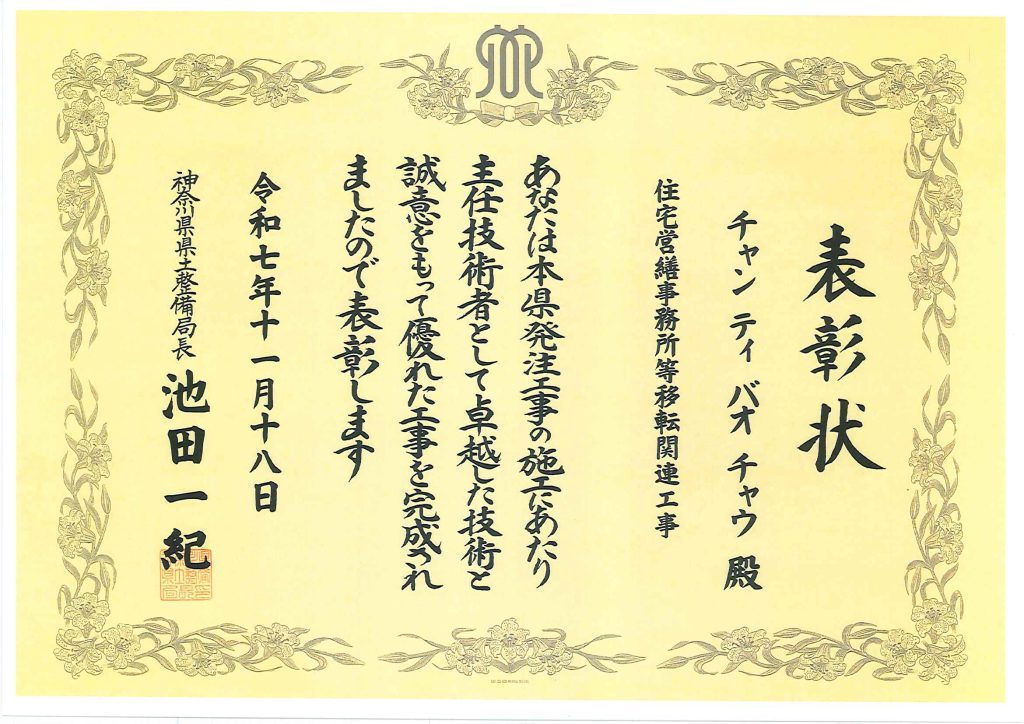 表彰状
チャン ティ バオ チャウ 殿
住宅営繕事務所等移転関連工事
あなたは本県発注工事の施工にあたり
主任技術者として卓越した技術と
誠意をもって優れた工事を完成され
ましたので表彰します
令和七年十一月十八日
神奈川県県土整備局長 池田一紀